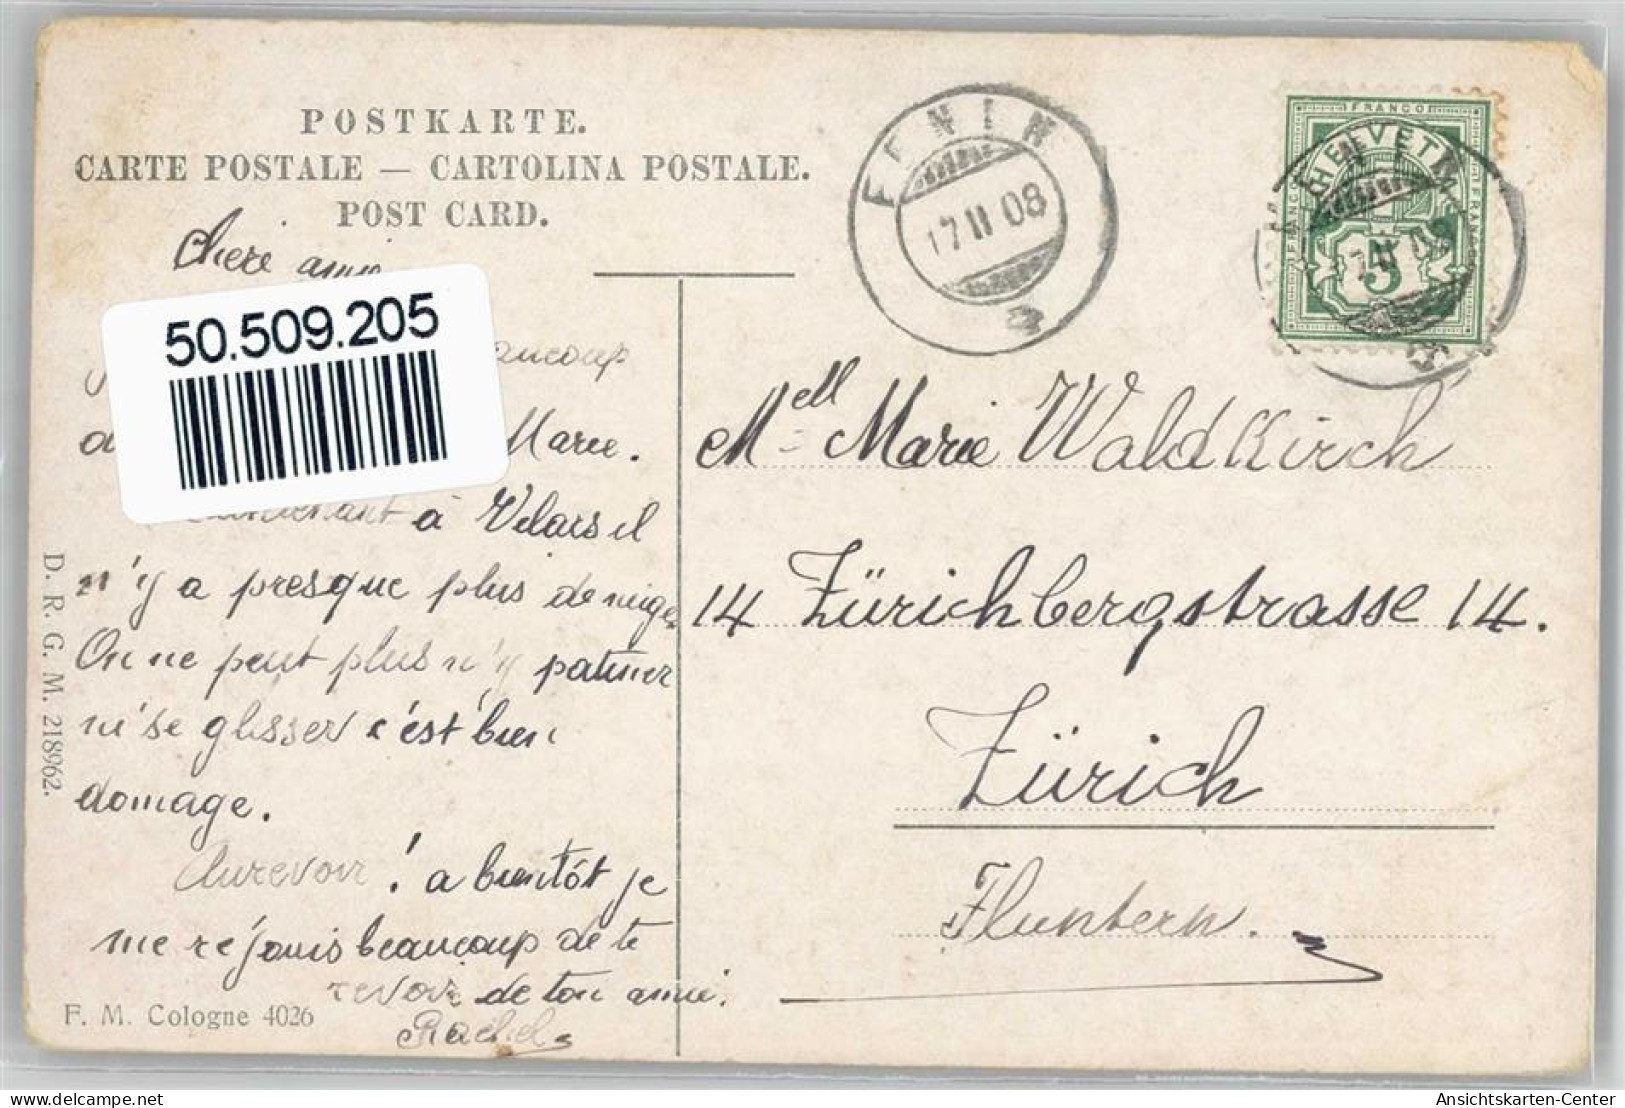 POSTKARTE.
CARTE POSTALE — CARTOLINA POSTALE.
POST CARD.
Chère amie
50.509.205
beaucoup
Marie.
maintenant à Vilars il
n'y a presque plus de neige.
On ne peut plus n'y patiner
ni se glisser c'est bien
domage.
Aurevoir! a bientôt je
me réjouis beaucoup de te
revoir de ton amie.
Rachel
D. R. G. M. 218962.
F. M. Cologne 4026
FENIN
17 II 08
FRANCO
HELVETIA
FRANCO
FRANCO
5
Mell Marie Waldkirch
14 Zürichbergstrasse 14.
Zürich
Fluntern.
oldthing.de
Ansichtskarten-Center